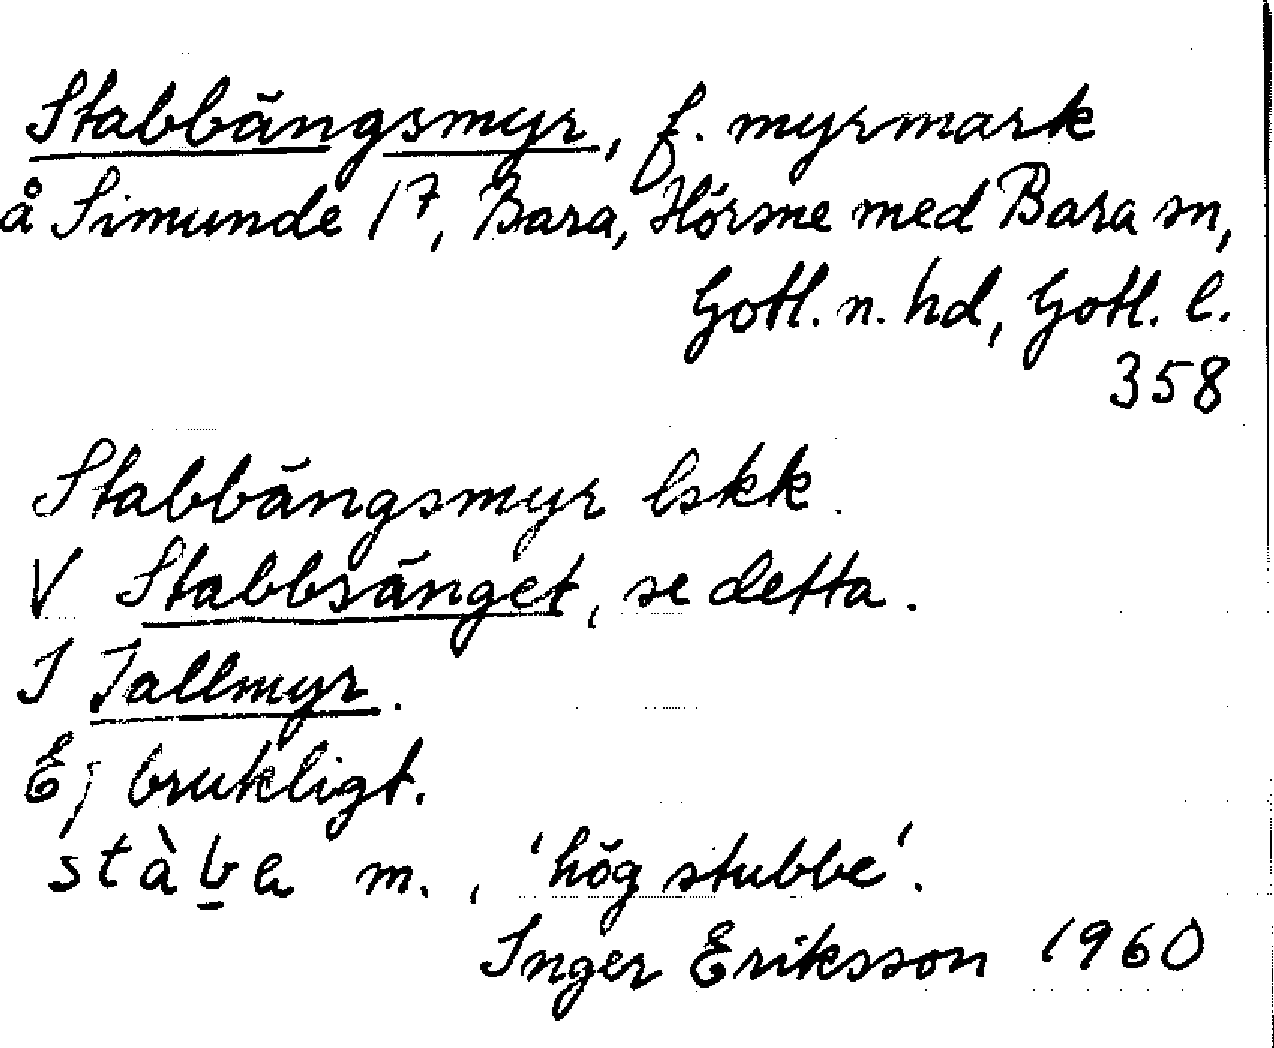 Stabbängsmyr, f. myrmark
å Simunde 1⁷, Bara, Hörsne med Bara sn,
Gotl. n. hd, Gotl. l.
358
Stabbängsmyr lskk.
V Stabbsänget, se detta.
I Tallmyr.
Ej brukligt.
stàb̲a m., 'hög stubbe'.
Inger Eriksson 1960